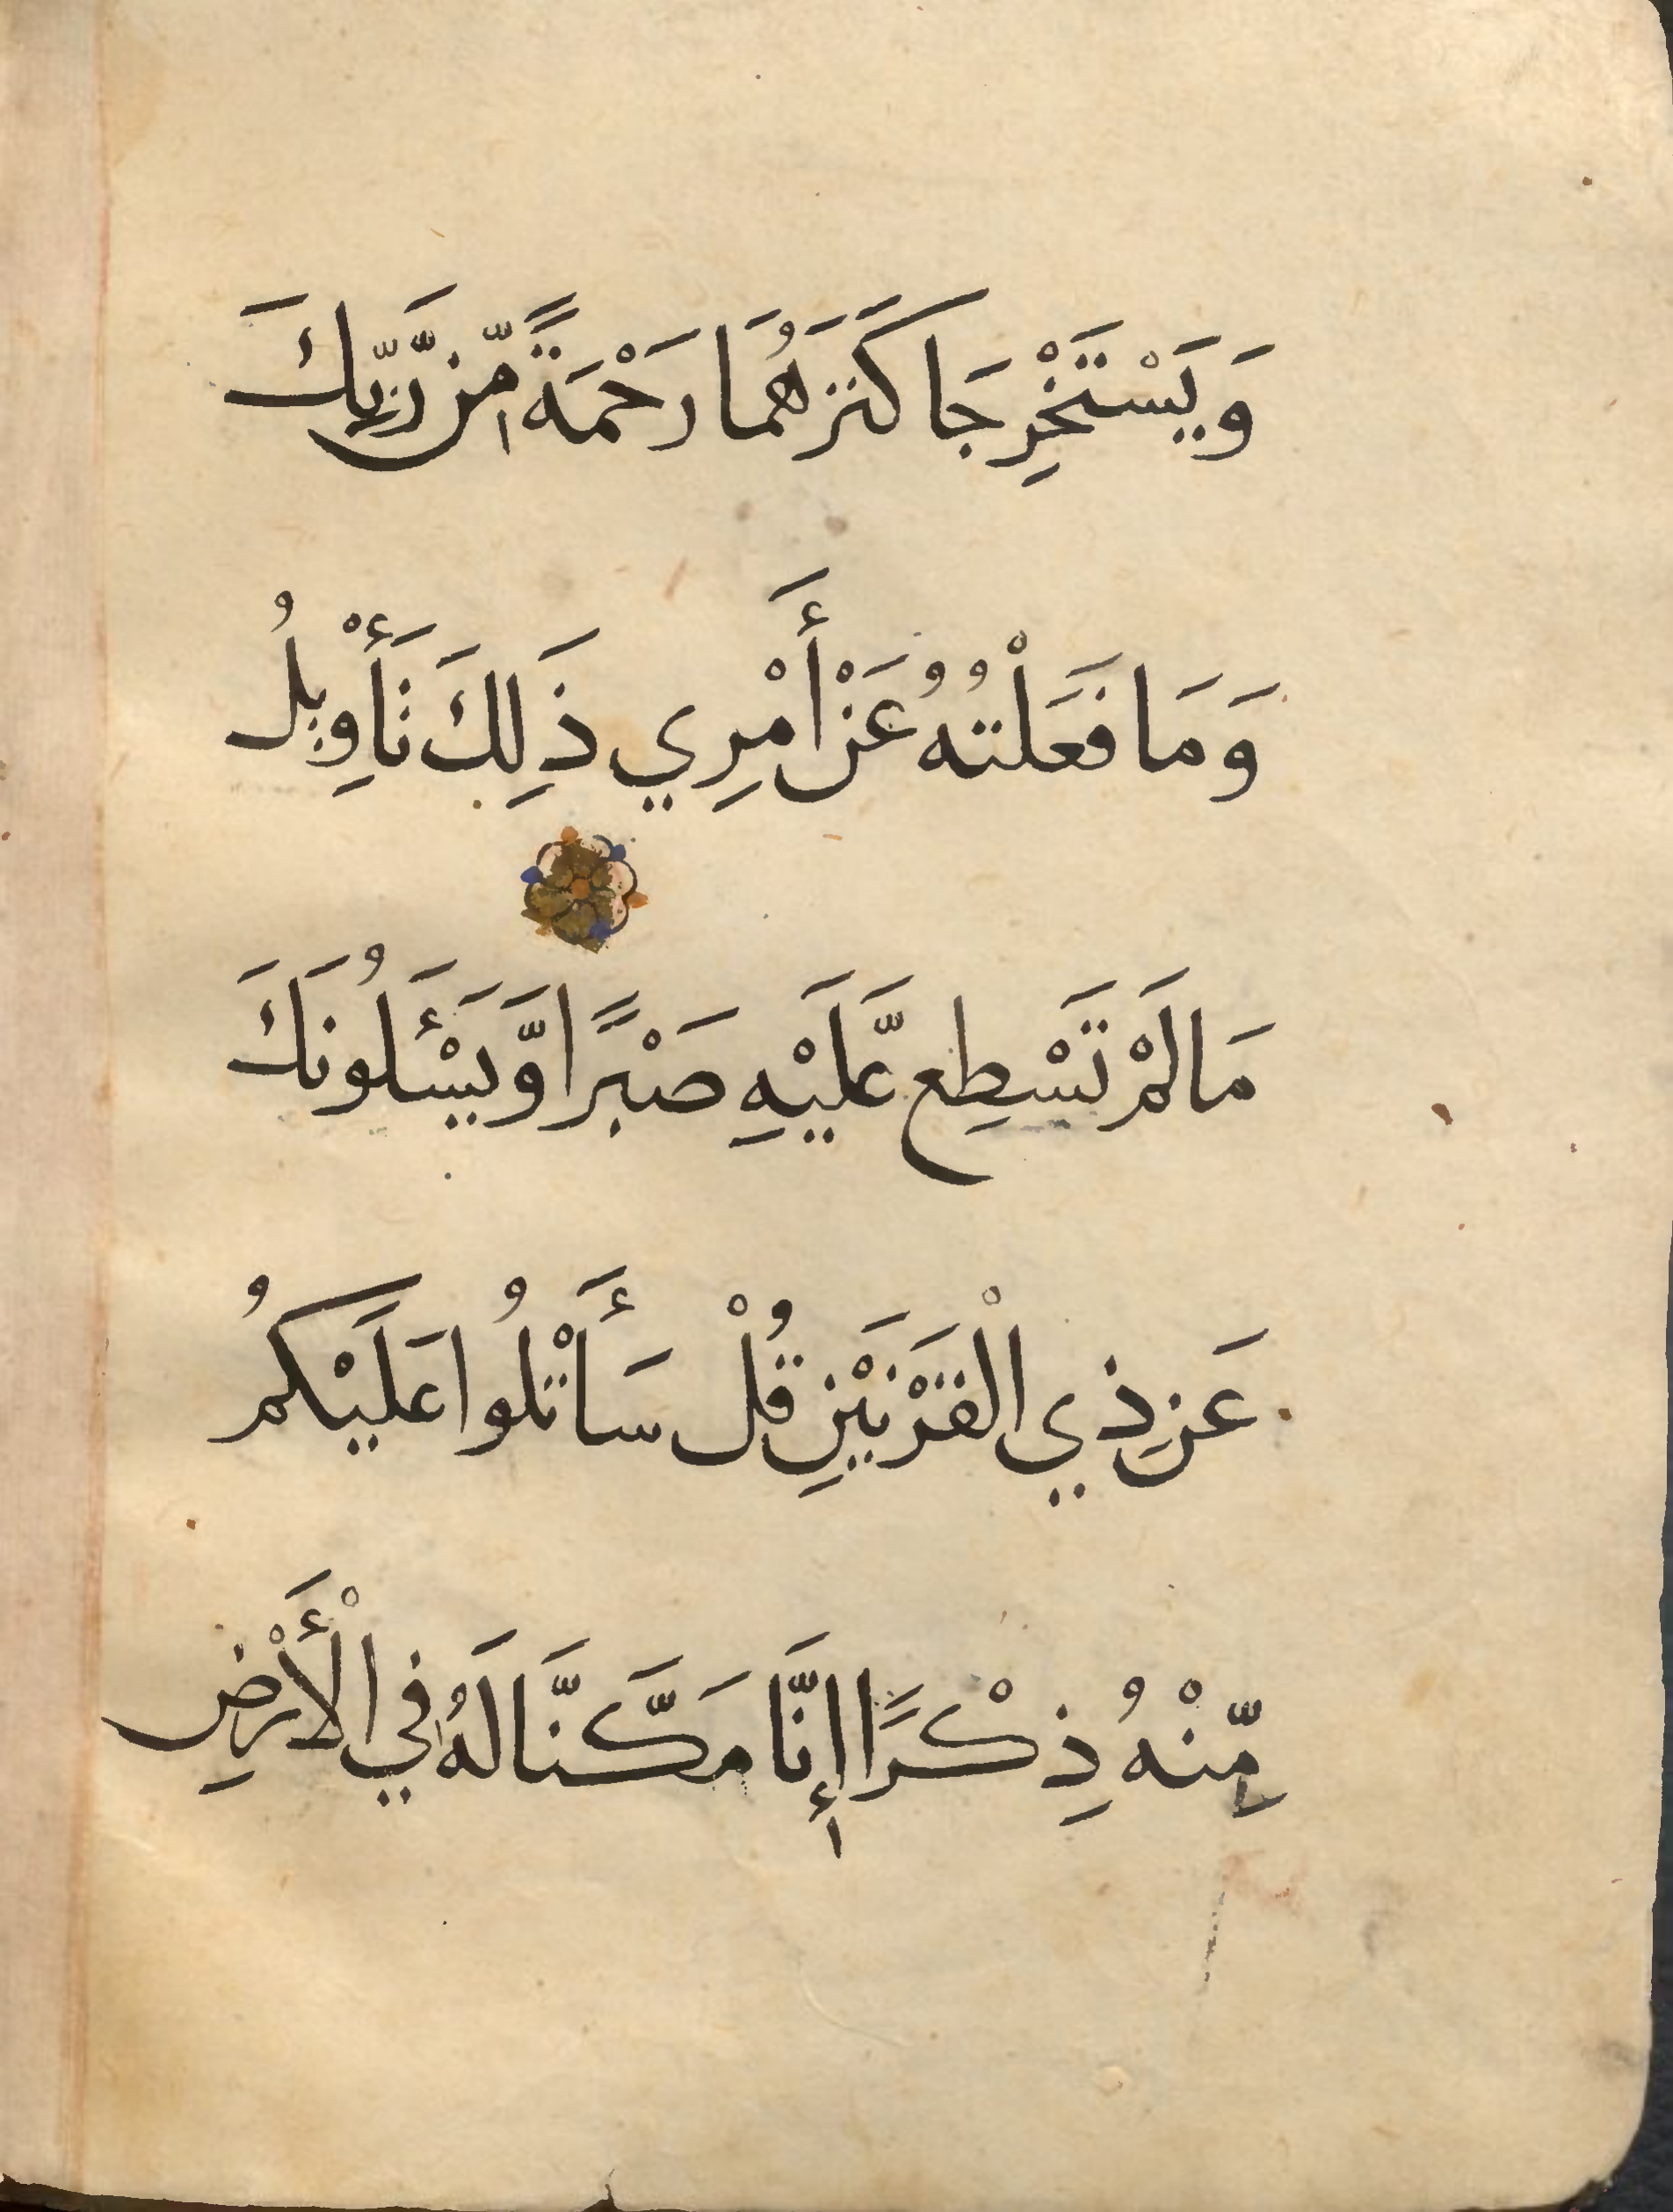 وَيَسْتَخْرِجَا كَنَزَهُمَا رَحْمَةً مِّن رَّبِّكَ
وَمَا فَعَلْتُهُ عَنْ أَمْرِي ذَلِكَ تَأْوِيلُ
مَا لَمْ تَسْطِع عَّلَيْهِ صَبْرًا وَّيَسْـَٔلُونَكَ
عَن ذِي الْقَرْنَيْنِ قُلْ سَأَتْلُوا عَلَيْكُمُ
مِّنْهُ ذِكْرًا إِنَّا مَكَّنَّا لَهُ فِي الْأَرْضِ